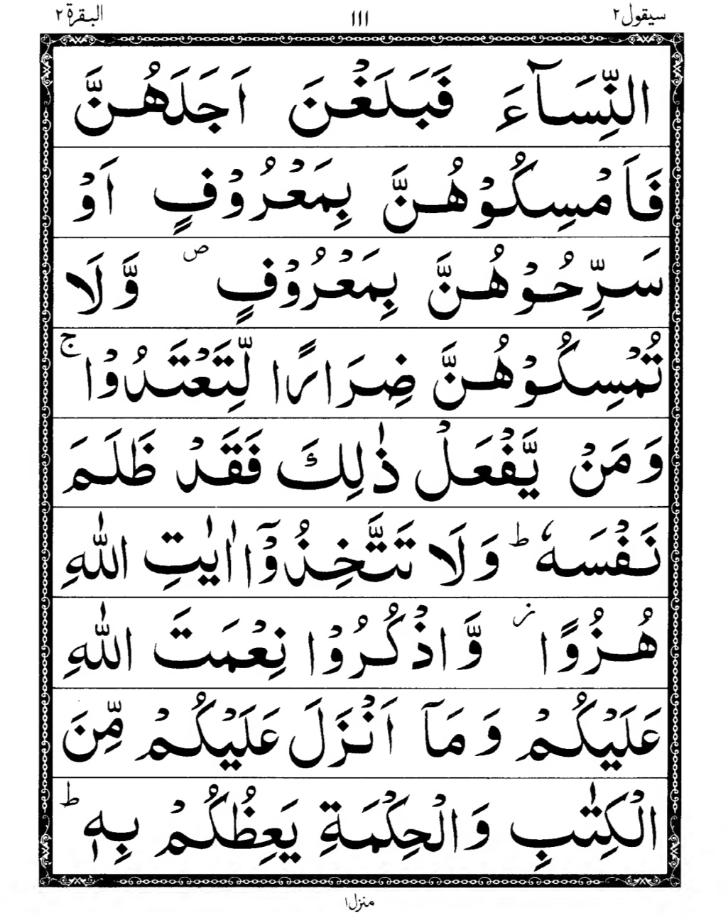 سيقول٢ ١١١ البقرة٢
النِّسَآءَ فَبَلَغْنَ اَجَلَهُنَّ
فَاَمْسِكُوْهُنَّ بِمَعْرُوْفٍ اَوْ
سَرِّحُوْهُنَّ بِمَعْرُوْفٍ ۪ وَّلَا
تُمْسِكُوْهُنَّ ضِرَارًا لِّتَعْتَدُوْا ۚ
وَمَنْ يَّفْعَلْ ذٰلِكَ فَقَدْ ظَلَمَ
نَفْسَهٗ ؕ وَلَا تَتَّخِذُوْٓا اٰيٰتِ اللّٰهِ
هُزُوًا ؗ وَّاذْكُرُوْا نِعْمَتَ اللّٰهِ
عَلَيْكُمْ وَمَآ اَنْزَلَ عَلَيْكُمْ مِّنَ
الْكِتٰبِ وَالْحِكْمَةِ يَعِظُكُمْ بِهٖ ؕ
منزل١